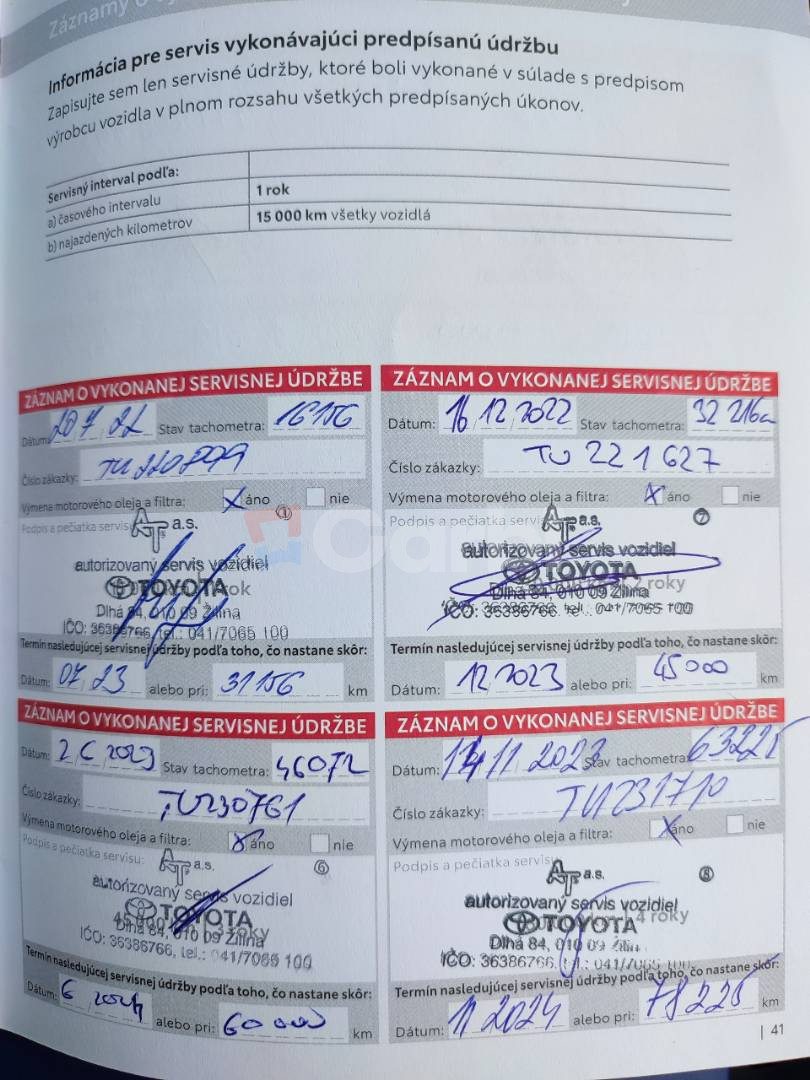 Záznamy o
Informácia pre servis vykonávajúci predpísanú údržbu
Zapisujte sem len servisné údržby, ktoré boli vykonané v súlade s predpisom
výrobcu vozidla v plnom rozsahu všetkých predpísaných úkonov.
Servisný interval podľa:
a) časového intervalu 1 rok
b) najazdených kilometrov 15 000 km všetky vozidlá
ZÁZNAM O VYKONANEJ SERVISNEJ ÚDRŽBE
Dátum: 20 7 22 Stav tachometra: 16156
Číslo zákazky: TU220899
Výmena motorového oleja a filtra: x áno nie
Podpis a pečiatka servisu
AT a.s. 1
autorizovaný servis vozidiel
TOYOTA rok
Dlhá 84, 010 09 Žilina
IČO: 36386766, tel.: 041/7065 100
Termín nasledujúcej servisnej údržby podľa toho, čo nastane skôr:
Dátum: 07 23 alebo pri: 31156 km
ZÁZNAM O VYKONANEJ SERVISNEJ ÚDRŽBE
Dátum: 16 12 2022 Stav tachometra: 32 216
Číslo zákazky: TU 221627
Výmena motorového oleja a filtra: x áno nie
Podpis a pečiatka servisu
AT a.s. 7
autorizovaný servis vozidiel
TOYOTA 2 roky
Dlhá 84, 010 09 Žilina
IČO: 36386766, tel.: 041/7065 100
Termín nasledujúcej servisnej údržby podľa toho, čo nastane skôr:
Dátum: 12 2023 alebo pri: 45000 km
ZÁZNAM O VYKONANEJ SERVISNEJ ÚDRŽBE
Dátum: 2 6 2023 Stav tachometra: 46072
Číslo zákazky: TU230761
Výmena motorového oleja a filtra: x áno nie
Podpis a pečiatka servisu:
AT a.s. 6
autorizovaný servis vozidiel
TOYOTA
45 000 3 roky
Dlhá 84, 010 09 Žilina
IČO: 36386766, tel.: 041/7065 100
Termín nasledujúcej servisnej údržby podľa toho, čo nastane skôr:
Dátum: 6 2024 alebo pri: 60000 km
ZÁZNAM O VYKONANEJ SERVISNEJ ÚDRŽBE
Dátum: 14 11 2023 Stav tachometra: 63225
Číslo zákazky: TU231710
Výmena motorového oleja a filtra: x áno nie
Podpis a pečiatka servisu
AT a.s. 8
autorizovaný servis vozidiel
TOYOTA 4 roky
Dlhá 84, 010 09 Žilina
IČO: 36386766, tel.: 041/7065 100
Termín nasledujúcej servisnej údržby podľa toho, čo nastane skôr:
Dátum: 11 2024 alebo pri: 78225 km
| 41